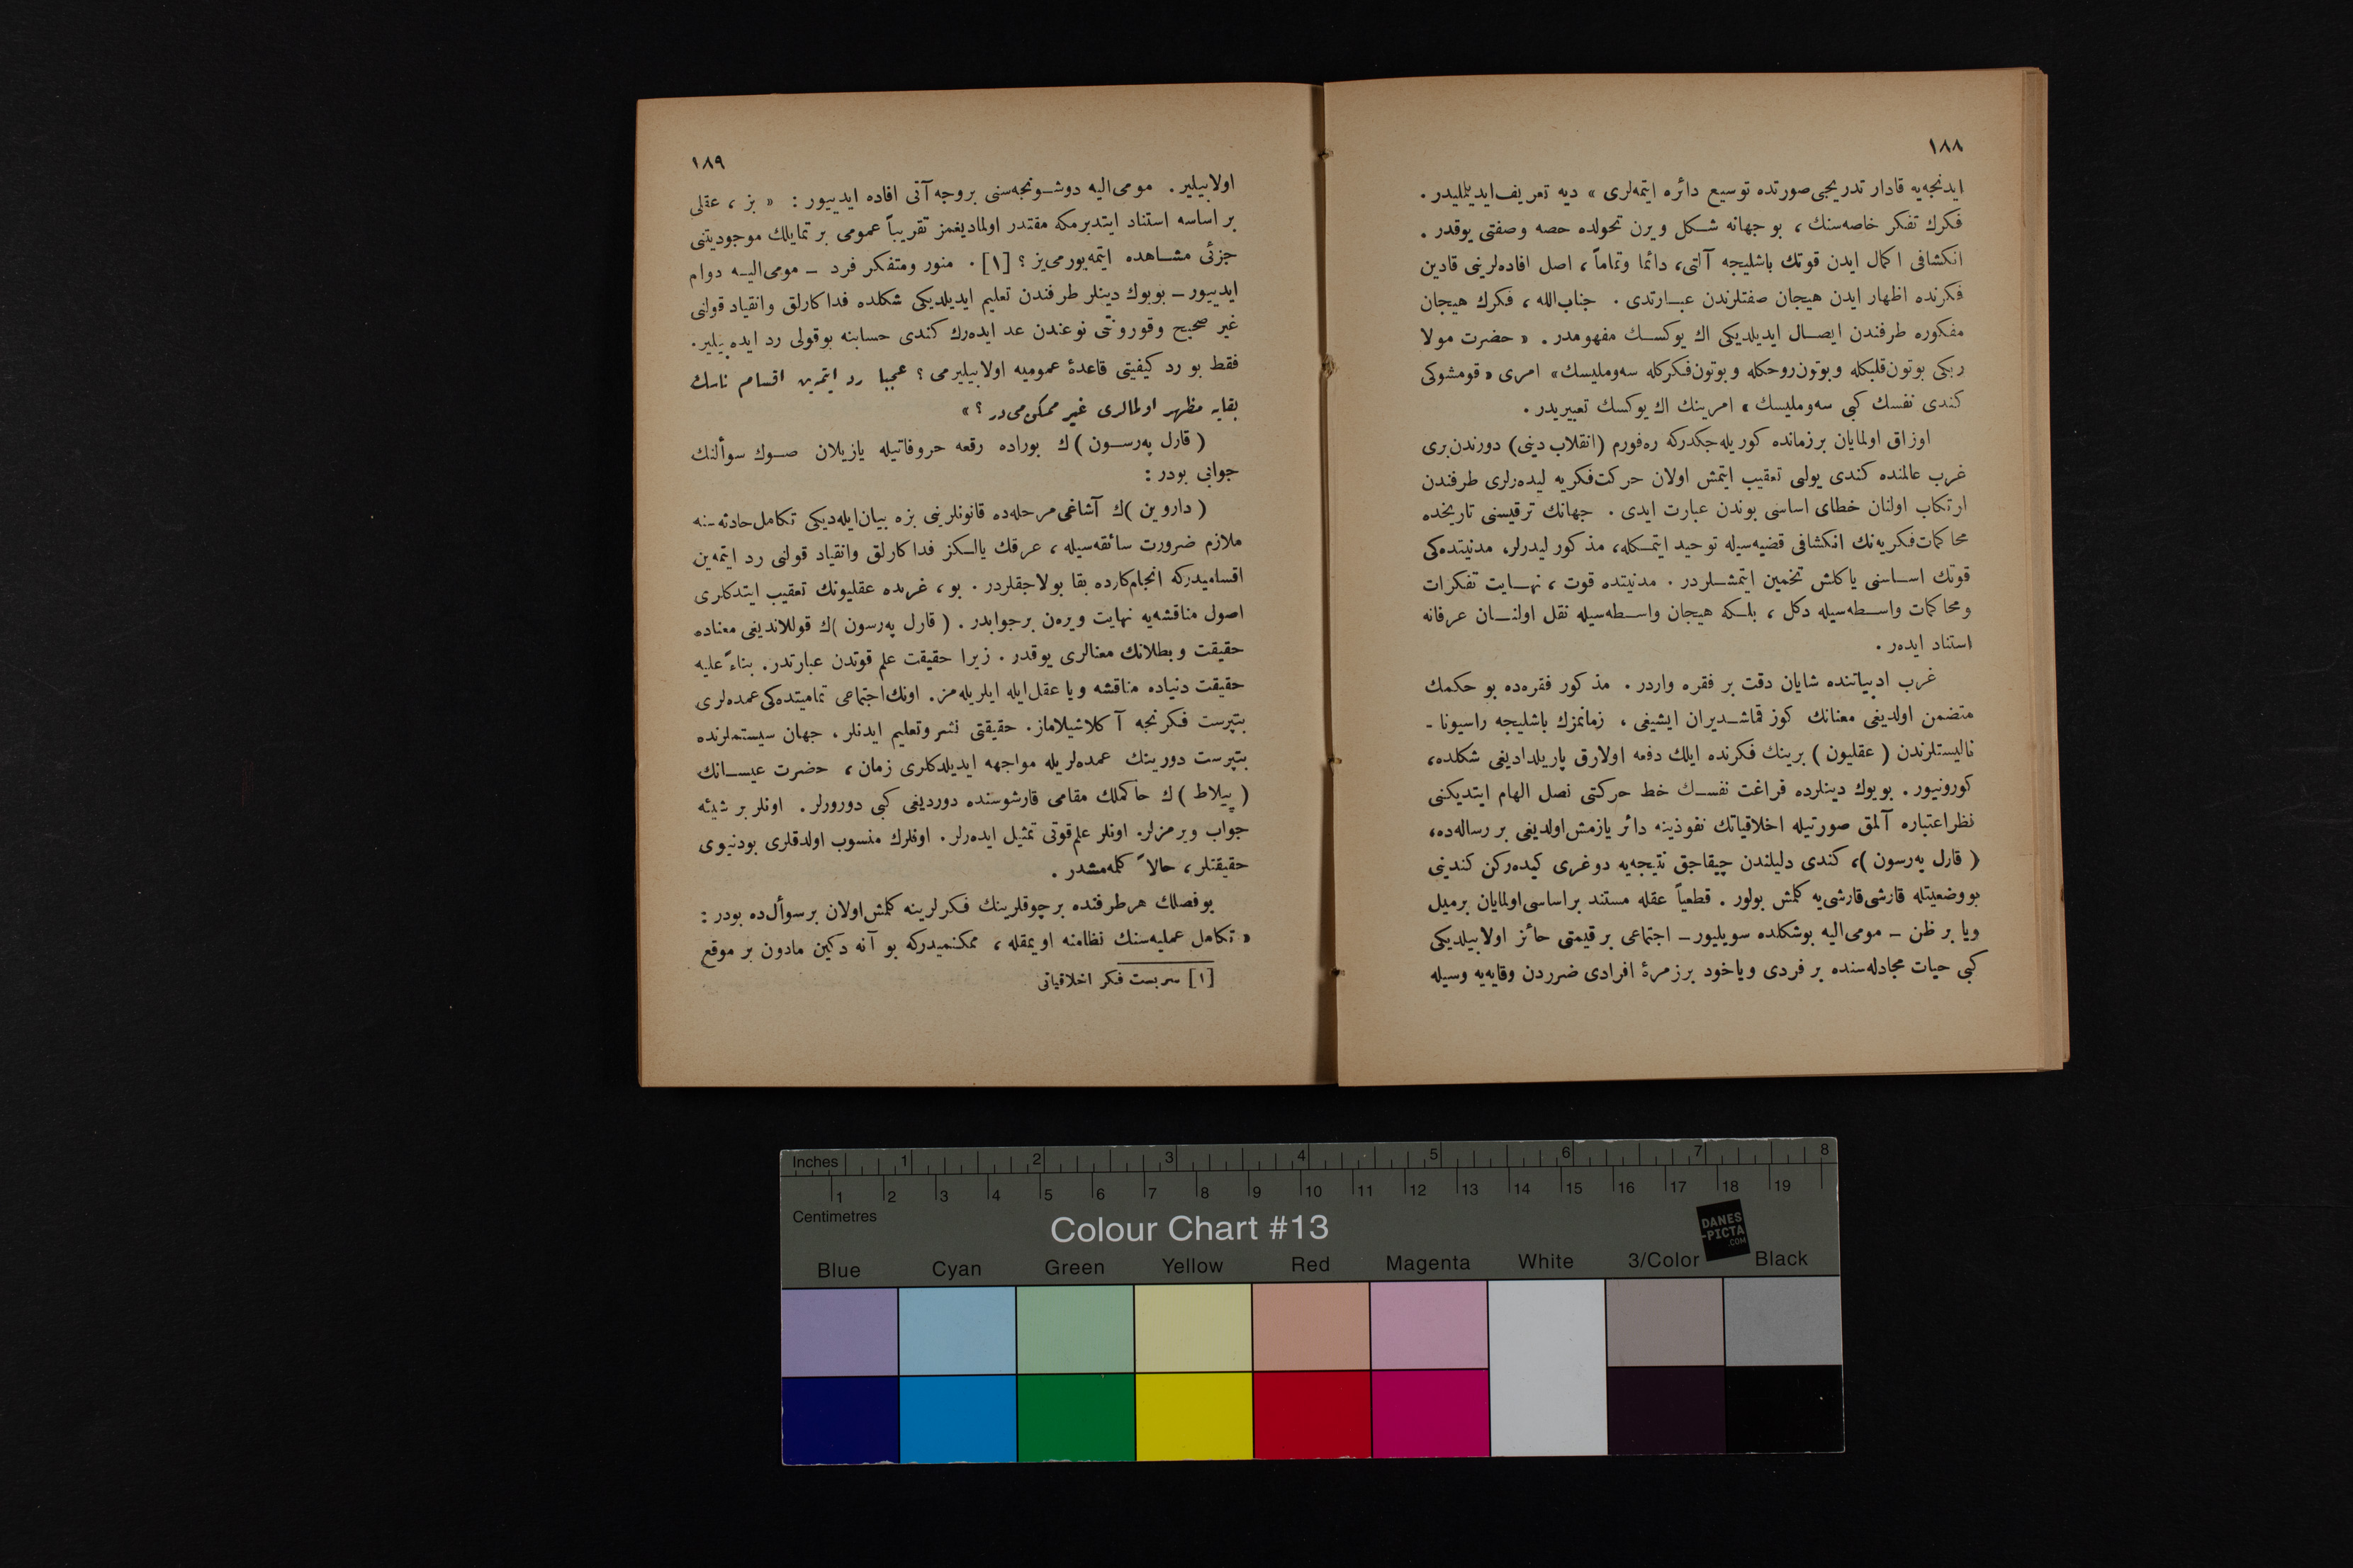 ١٨٨
ايدنجه‌يه قادار تدريجى صورتده توسيع دائره ايتمه‌لرى » ديه تعريف ايديلمليدر .
فكرك تفكر خاصه‌سنك ، بو جهانه شكل ويرن تحولده حصه وصفتى يوقدر .
انكشافى اكمال ايدن قوتك باشليجه آلتى، دائما وتماماً ، اصل افاده‌لرينى قادين
فكرنده اظهار ايدن هيجان صفتلرندن عبارتدى . جناب‌الله ، فكرك هيجان
مفكوره طرفندن ايصال ايديلديكى اك يوكسك مفهومدر . « حضرت مولا
ربكى بوتون قلبكله وبوتون روحكله وبوتون فكركله سه‌ومليسك» امرى « قومشوكى
كندى نفسك كبى سه‌ومليسك » امرينك اك يوكسك تعبيريدر .
اوزاق اولمايان برزمانده كوريله‌جكدركه ره‌فورم (انقلاب دينى) دورندن برى
غرب عالمنده كندى يولى تعقيب ايتمش اولان حركت فكريه ليده‌رلرى طرفندن
ارتكاب اولنان خطاى اساسى بوندن عبارت ايدى . جهانك ترقيسنى تاريخده
محاكمات فكريه‌نك انكشافى قضيه‌سيله توحيد ايتمكله، مذكور ليدرلر، مدنيتده‌كى
قوتك اساسنى ياكلش تخمين ايتمشلردر . مدنيتده قوت ، نهايت تفكرات
ومحاكمات واسطه‌سيله دكل ، بلكه هيجان واسطه‌سيله نقل اولنان عرفانه
استناد ايده‌ر .
غرب ادبياتنده شايان دقت بر فقره واردر . مذكور فقره‌ده بو حكمك
متضمن اولديغى معنانك كوز قماشديران ايشيغى ، زمانمزك باشليجه راسيونا -
ناليستلرندن ( عقليون ) برينك فكرنده ايلك دفعه اولارق پاريلداديغى شكلده،
كورونيور . بويوك دينلرده فراغت نفسك خط حركتى نصل الهام ايتديكنى
نظر اعتباره آلمق صورتيله اخلاقياتك نفوذينه دائر يازمش اولديغى بر رساله‌ده،
( قارل پەرسون )، كندى دليلندن چيقاجق نتيجه‌يه دوغرى كيده‌ركن كندينى
بووضعيتله قارشى قارشى‌يه كلمش بولور . قطعياً عقله مستند براساسى اولمايان برميل
ويا بر ظن – مومى اليه بوشكلده سويليور – اجتماعى بر قيمتى حائز اولابيلديكى
كبى حيات مجادله‌سنده بر فردى وياخود برزمرهٔ افرادى ضرردن وقايه‌يه وسيله
١٨٩
اولابيلير . مومى اليه دوشونجه‌سنى بروجه آتى افاده ايدييور : « بز ، عقلى
بر اساسه استناد ايتديرمكه مقتدر اولماديغمز تقريباً عمومى بر تمايلك موجوديتنى
جزئى مشاهده ايتمه‌يورمى‌يز ؟ [١] . منور ومتفكر فرد – مومى اليه دوام
ايدييور – بويوك دينلر طرفندن تعليم ايديلديكى شكلده فداكارلق وانقياد قولنى
غير صحيح وقورونتى نوعندن عد ايده‌رك كندى حسابنه بوقولى رد ايده بيلير.
فقط بو رد كيفيتى قاعدهٔ عموميه اولابيليرمى ؟ عجبا رد ايتمه‌ين اقسام ناسك
بقايه مظهر اولمالرى غير ممكن‌مى‌در ؟ »
( قارل پەرسون )ك بوراده رقعه حروفاتيله يازيلان صوك سوألنك
جوابى بودر :
( داروين )ك آشاغى مرحله‌ده قانونلرينى بزه بيان ايله‌ديكى تكامل حادثه‌سنه
ملازم ضرورت سائقه‌سيله ، عرقك يالكز فداكارلق وانقياد قولنى رد ايتمه‌ين
اقساميدركه انجام‌كارده بقا بولاجقلردر . بو ، غربده عقليونك تعقيب ايتدكلرى
اصول مناقشه‌يه نهايت ويره‌ن برجوابدر . ( قارل پەرسون )ك قوللانديغى معناده
حقيقت و بطلانك معنالرى يوقدر . زيرا حقيقت علم قوتدن عبارتدر. بناءً عليه
حقيقت دنياده مناقشه ويا عقل ايله ايلريله‌مز. اونك اجتماعى تماميتده‌كى عمده‌لرى
بتپرست فكرنجه آكلاشيلاماز. حقيقتى نشر وتعليم ايدنلر، جهان سيستملرنده
بتپرست دورينك عمده‌لريله مواجهه ايديلدكلرى زمان ، حضرت عيسانك
( پيلاط )ك حاكملك مقامى قارشوسنده دورديغى كبى دورورلر. اونلر بر شيئه
جواب ويرمزلر. اونلر علم قوتى تمثيل ايده‌رلر. اونلرك منسوب اولدقلرى بودنيوى
حقيقتلر ، حالاً كلمه‌مشدر .
بوفصلك هرطرفنده برچوقلرينك فكرلرينه كلمش اولان برسوأل‌ده بودر :
« تكامل عمليه‌سنك نظامنه اويمقله ، ممكنميدركه بو آنه دكين مادون بر موقع
[١] سربست فكر اخلاقياتى
Inches 1 2 3 4 5 6 7 8
1 2 3 4 5 6 7 8 9 10 11 12 13 14 15 16 17 18 19
Centimetres
Colour Chart #13
DANES
-PICTA
.COM
Blue Cyan Green Yellow Red Magenta White 3/Color Black